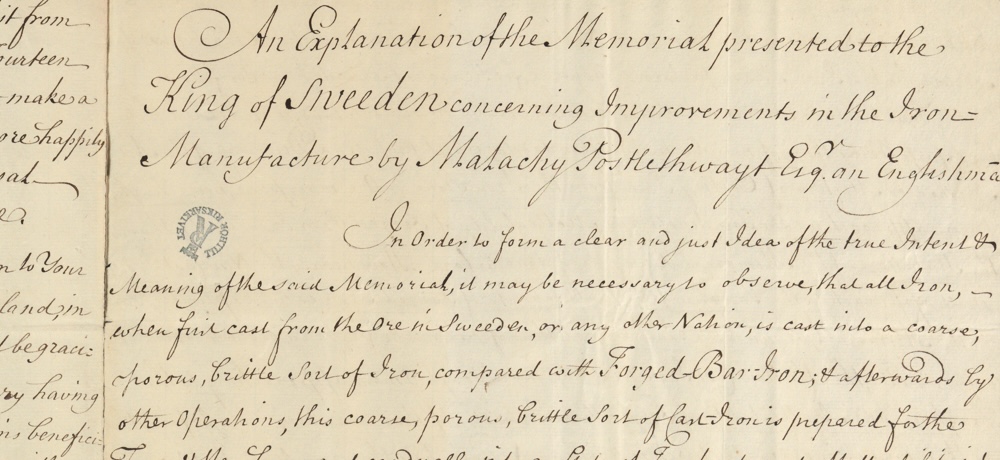 it from
ourteen
make a
ore happily
sal
n to Your
land, in
begraci=
ry having
ns benefici=
An Explanation of the Memorial presented to the
King of Sweeden concerning Improvements in the Iron=
Manufacture by Malachy Postlethwayt Esqr. an Englishmā
TILLHÖR RIKSARKIVET
In Order to form a clear and just Idea of the true Intent &
Meaning of the said Memorial, it may be necessary to observe, that all Iron,
when first cast from the Ore in Sweeden, or any other Nation, is cast into a coarse,
porous, brittle Sort of Iron, compared with Forged-Bar Iron; & afterwards by
other Operations, this coarse, porous, brittle Sort of Cast-Iron is prepared for the